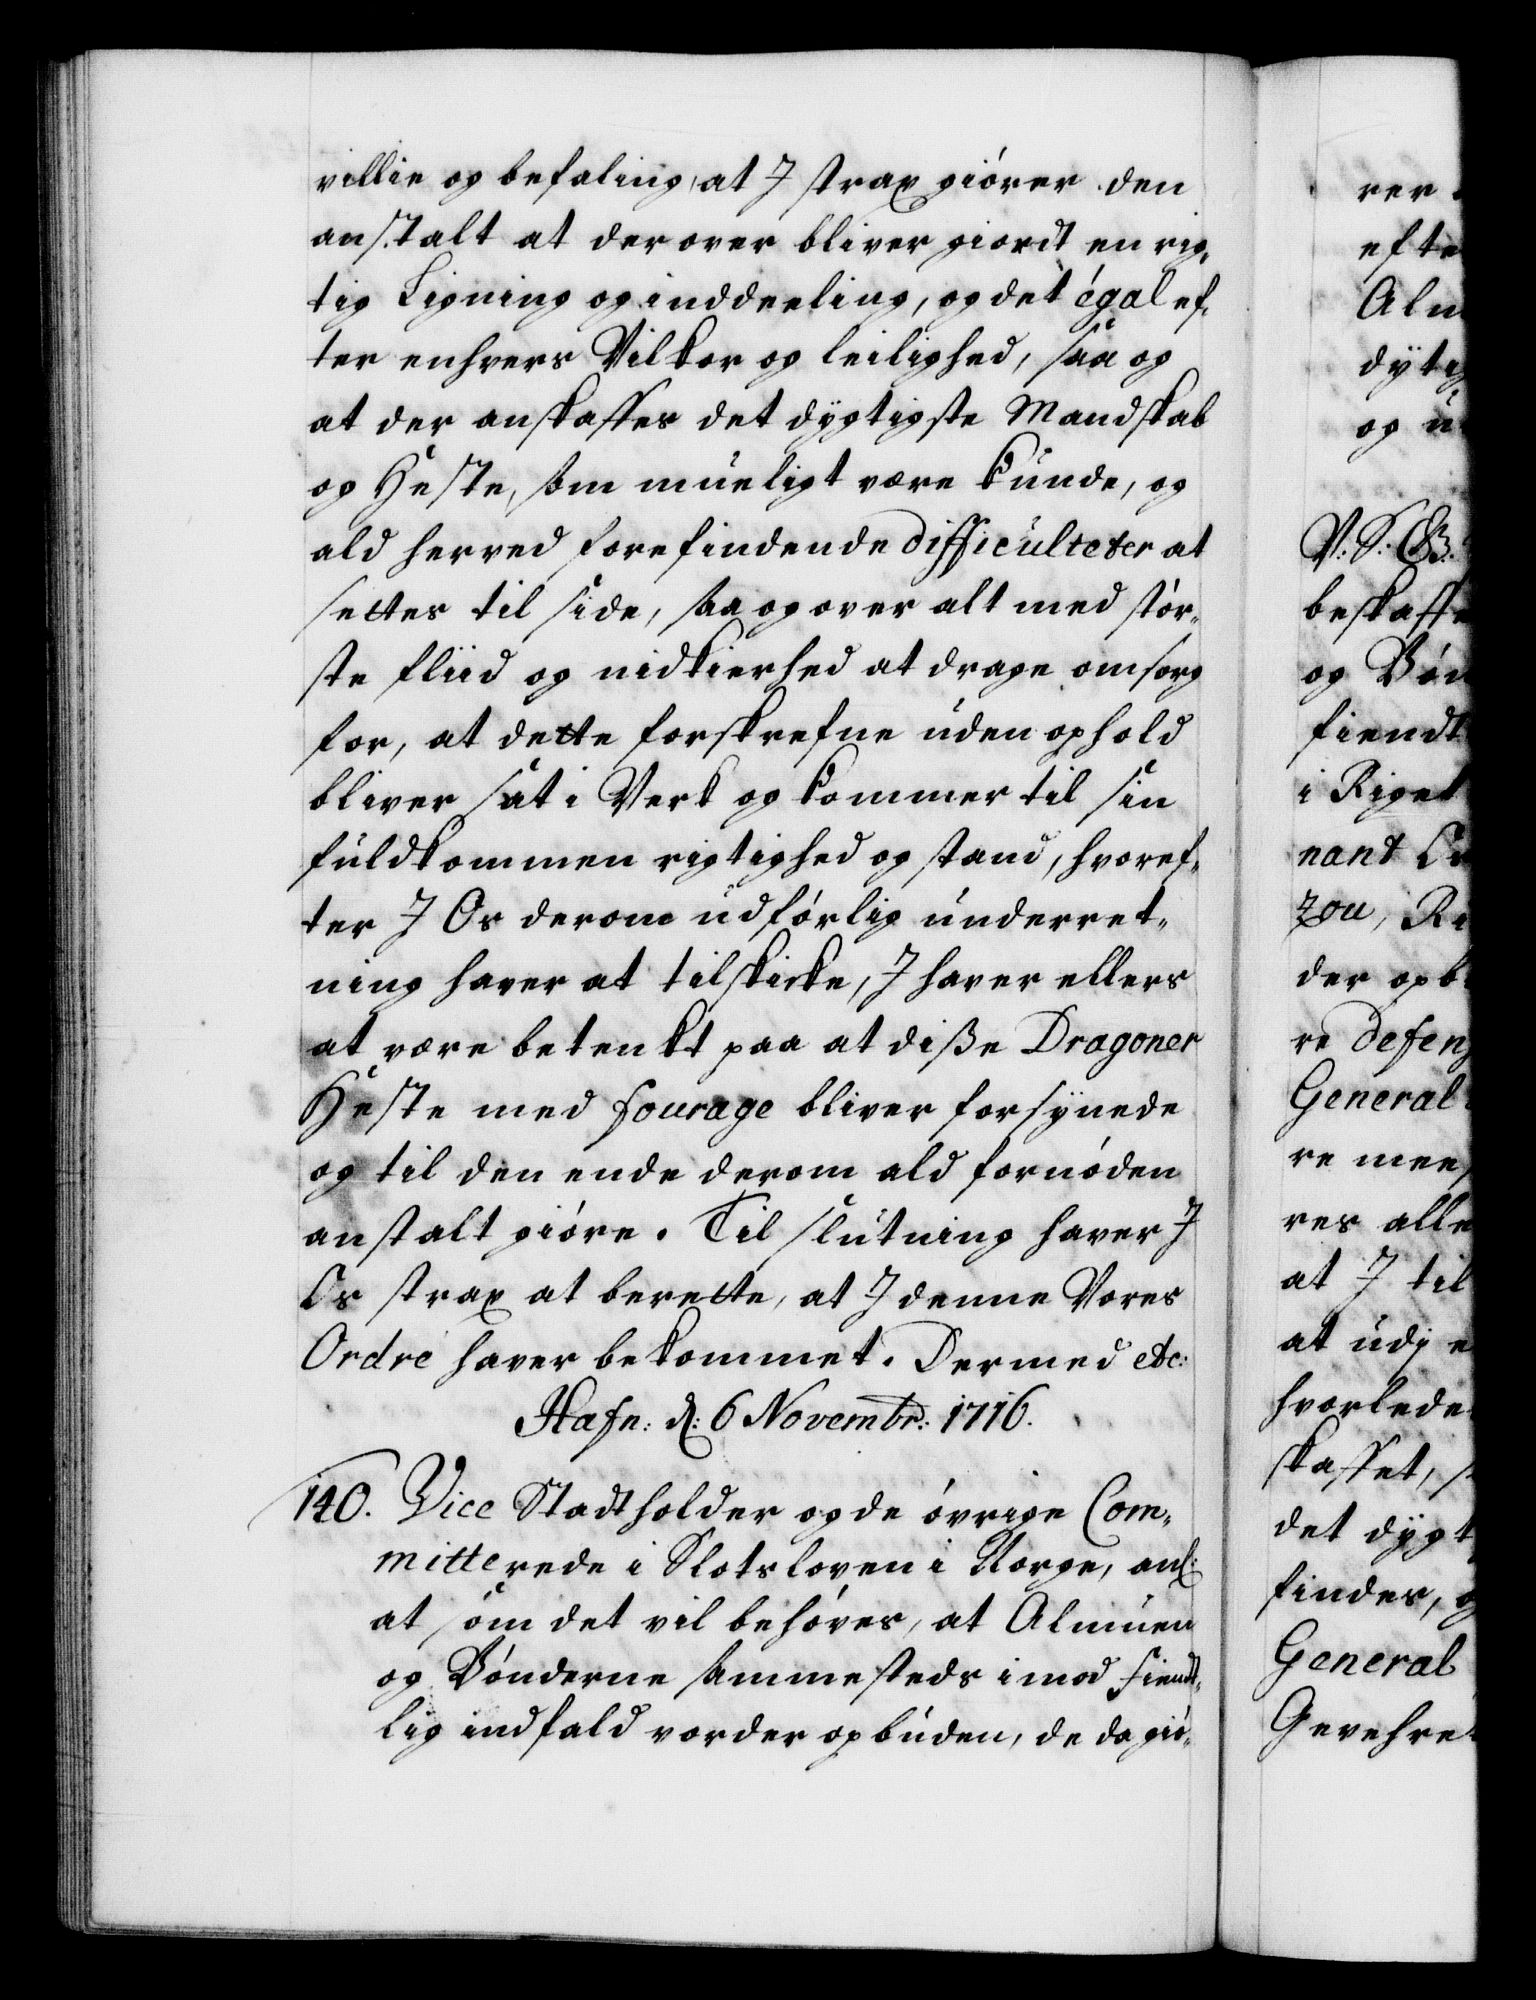 villie og befaling, at I strax giører den
anstalt at derover bliver giordt en rig„
tig Ligning og inddeeling, og det égal ef„
ter enhvers Vilkor og leilighed, saa og
at der anskaffes det dygtigste Mandskab
og Heste, som mueligt være kunde, og
ald herved forefindende difficulteter at
settes til side, saa og over alt med stør„
ste fliid og nidkierhed at drage omsorg
for, at dette forskrefne uden ophold
bliver sat i Verk og kommer til sin
fuldkommen rigtighed og stand, hvoref„
ter I Os derom udførlig underret„
ning haver at tilskicke, I haver ellers
at være betenkt paa at diße Dragoner
Heste med fourage bliver forsynede
og til den ende derom ald fornøden
anstalt giøre. Til slutning haver I
Os strax at berette, at I denne Vores
Ordre haver bekommet. Dermed etc:
Hafn: d: 6 Novembr: 1716.
140. Vice Stadtholder og de øvrige Com„
mitterede i Slotsloven i Norge, anl:
at som det vil behøves, at Almuen
og Bønderne sammesteds imod fiendt„
lig indfald vorder opbuden, de da giø„
rer
efte
Alm
dyti
og u
V: S: G
beskaffe
og Bøn
fiendt
i Riget
nant
zou, Ri
der opb
re defen
General
re mee
res alle
at I til
at udj e
hvorlede
skaffet, s
det dygt
findes, o
General
Gevehre